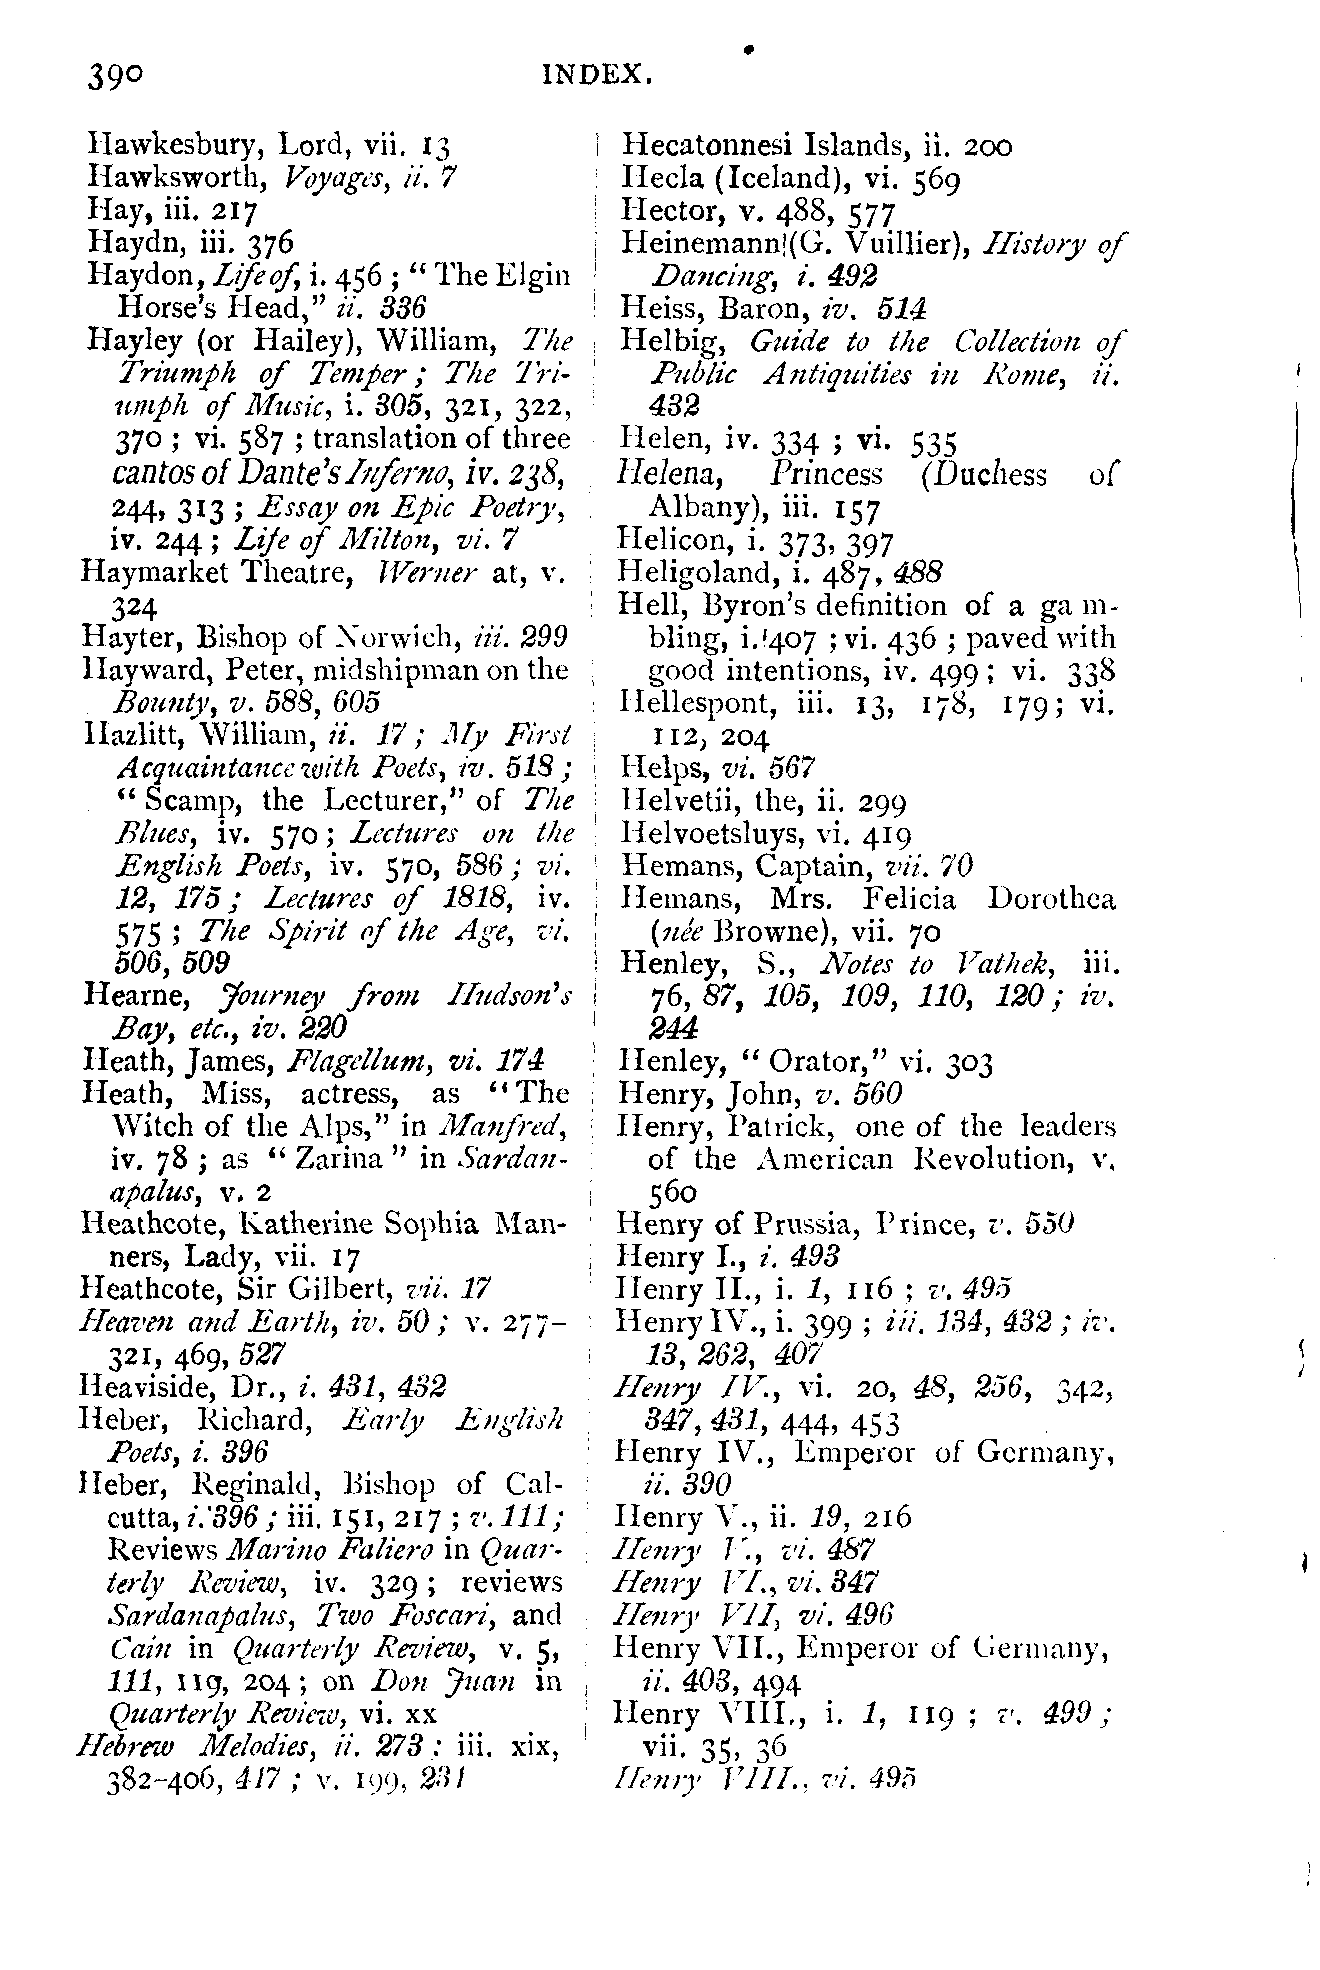 390 INDEX.
Hawkesbury, Lord, vii. 13
Hawksworth, Voyages, ii. 7
Hay, iii. 217
Haydn, iii. 376
Haydon, Life of, i. 456 ; “ The Elgin
Horse’s Head,” ii. 336
Hayley (or Hailey), William, The
Triumph of Temper ; The Tri-
umph of Music, i. 305, 321, 322,
370 ; vi. 587 ; translation of three
cantos of Dante’s Inferno, iv. 238,
244, 313 ; Essay on Epic Poetry,
iv. 244 ; Life of Milton, vi. 7
Haymarket Theatre, Werner at, v.
324
Hayter, Bishop of Norwich, iii. 299
Hayward, Peter, midshipman on the
Bounty, v. 588, 605
Hazlitt, William, ii. 17 ; My First
Acquaintance with Poets, iv. 518 ;
“ Scamp, the Lecturer,” of The
Blues, iv. 570 ; Lectures on the
English Poets, iv. 570, 586 ; vi.
12, 175 ; Lectures of 1818, iv.
575 ; The Spirit of the Age, vi.
506, 509
Hearne, Journey from Hudson’s
Bay, etc., iv. 220
Heath, James, Flagellum, vi. 174
Heath, Miss, actress, as “ The
Witch of the Alps,” in Manfred,
iv. 78 ; as “ Zarina ” in Sardan-
apalus, v. 2
Heathcote, Katherine Sophia Man-
ners, Lady, vii. 17
Heathcote, Sir Gilbert, vii. 17
Heaven and Earth, iv. 50 ; v. 277–
321, 469, 527
Heaviside, Dr., i. 431, 432
Heber, Richard, Early English
Poets, i. 396
Heber, Reginald, Bishop of Cal-
cutta, i. 396 ; iii. 151, 217 ; v. 111 ;
Reviews Marino Faliero in Quar-
terly Review, iv. 329 ; reviews
Sardanapalus, Two Foscari, and
Cain in Quarterly Review, v. 5,
111, 119, 204 ; on Don Juan in
Quarterly Review, vi. xx
Hebrew Melodies, ii. 273 ; iii. xix,
382–406, 417 ; v. 199, 231
Hecatonnesi Islands, ii. 200
Hecla (Iceland), vi. 569
Hector, v. 488, 577
Heinemann (G. Vuillier), History of
Dancing, i. 492
Heiss, Baron, iv. 514
Helbig, Guide to the Collection of
Public Antiquities in Rome, ii.
432
Helen, iv. 334 ; vi. 535
Helena, Princess (Duchess of
Albany), iii. 157
Helicon, i. 373, 397
Heligoland, i. 487, 488
Hell, Byron’s definition of a gam-
bling, i. 407 ; vi. 436 ; paved with
good intentions, iv. 499 ; vi. 338
Hellespont, iii. 13, 178, 179 ; vi.
112, 204
Helps, vi. 567
Helvetii, the, ii. 299
Helvoetsluys, vi. 419
Hemans, Captain, vii. 70
Hemans, Mrs. Felicia Dorothea
(née Browne), vii. 70
Henley, S., Notes to Vathek, iii.
76, 87, 105, 109, 110, 120 ; iv.
244
Henley, “ Orator,” vi. 303
Henry, John, v. 560
Henry, Patrick, one of the leaders
of the American Revolution, v.
560
Henry of Prussia, Prince, v. 550
Henry I., i. 493
Henry II., i. 1, 116 ; v. 495
Henry IV., i. 399 ; iii. 134, 432 ; iv.
13, 262, 407
Henry IV., vi. 20, 48, 256, 342,
347, 431, 444, 453
Henry IV., Emperor of Germany,
ii. 390
Henry V., ii. 19, 216
Henry V., vi. 487
Henry VI., vi. 347
Henry VII, vi. 496
Henry VII., Emperor of Germany,
ii. 403, 494
Henry VIII., i. 1, 119 ; v. 499 ;
vii. 35, 36
Henry VIII., vi. 495